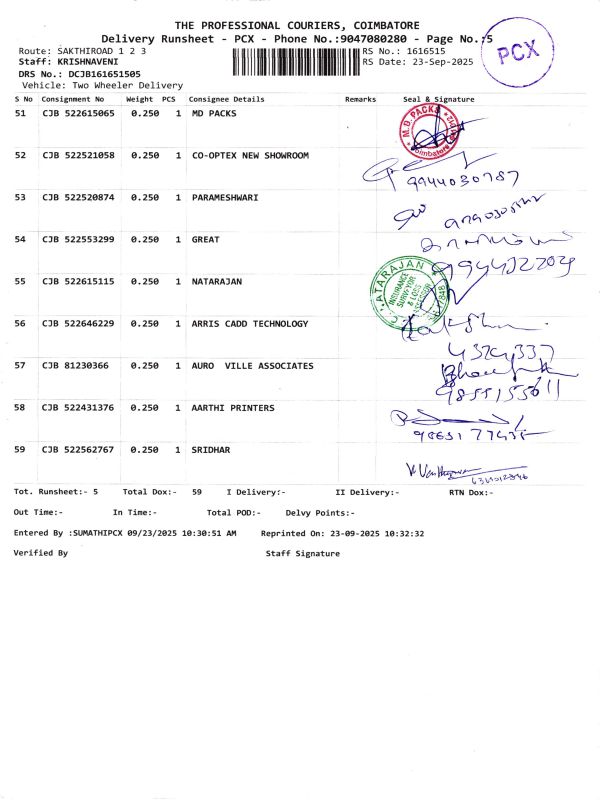 THE PROFESSIONAL COURIERS, COIMBATORE
Delivery Runsheet - PCX - Phone No.:9047080280 - Page No.:5
PCX
Route: SAKTHIROAD 1 2 3
RS No.: 1616515
Staff: KRISHNAVENI
RS Date: 23-Sep-2025
DRS No.: DCJB161651505
Vehicle: Two Wheeler Delivery
S No Consignment No Weight PCS Consignee Details Remarks Seal & Signature
51 CJB 522615065 0.250 1 MD PACKS
M.D. PACKS
Coimbatore
52 CJB 522521058 0.250 1 CO-OPTEX NEW SHOWROOM
9944030787
53 CJB 522520874 0.250 1 PARAMESHWARI
54 CJB 522553299 0.250 1 GREAT
55 CJB 522615115 0.250 1 NATARAJAN
NATARAJAN
INSURANCE
SURVEYOR
& LOSS
ASSESSOR
56 CJB 522646229 0.250 1 ARRIS CADD TECHNOLOGY
57 CJB 81230366 0.250 1 AURO VILLE ASSOCIATES
58 CJB 522431376 0.250 1 AARTHI PRINTERS
59 CJB 522562767 0.250 1 SRIDHAR
Tot. Runsheet:- 5 Total Dox:- 59 I Delivery:- II Delivery:- RTN Dox:-
Out Time:- In Time:- Total POD:- Delvy Points:-
Entered By :SUMATHIPCX 09/23/2025 10:30:51 AM Reprinted On: 23-09-2025 10:32:32
Verified By Staff Signature